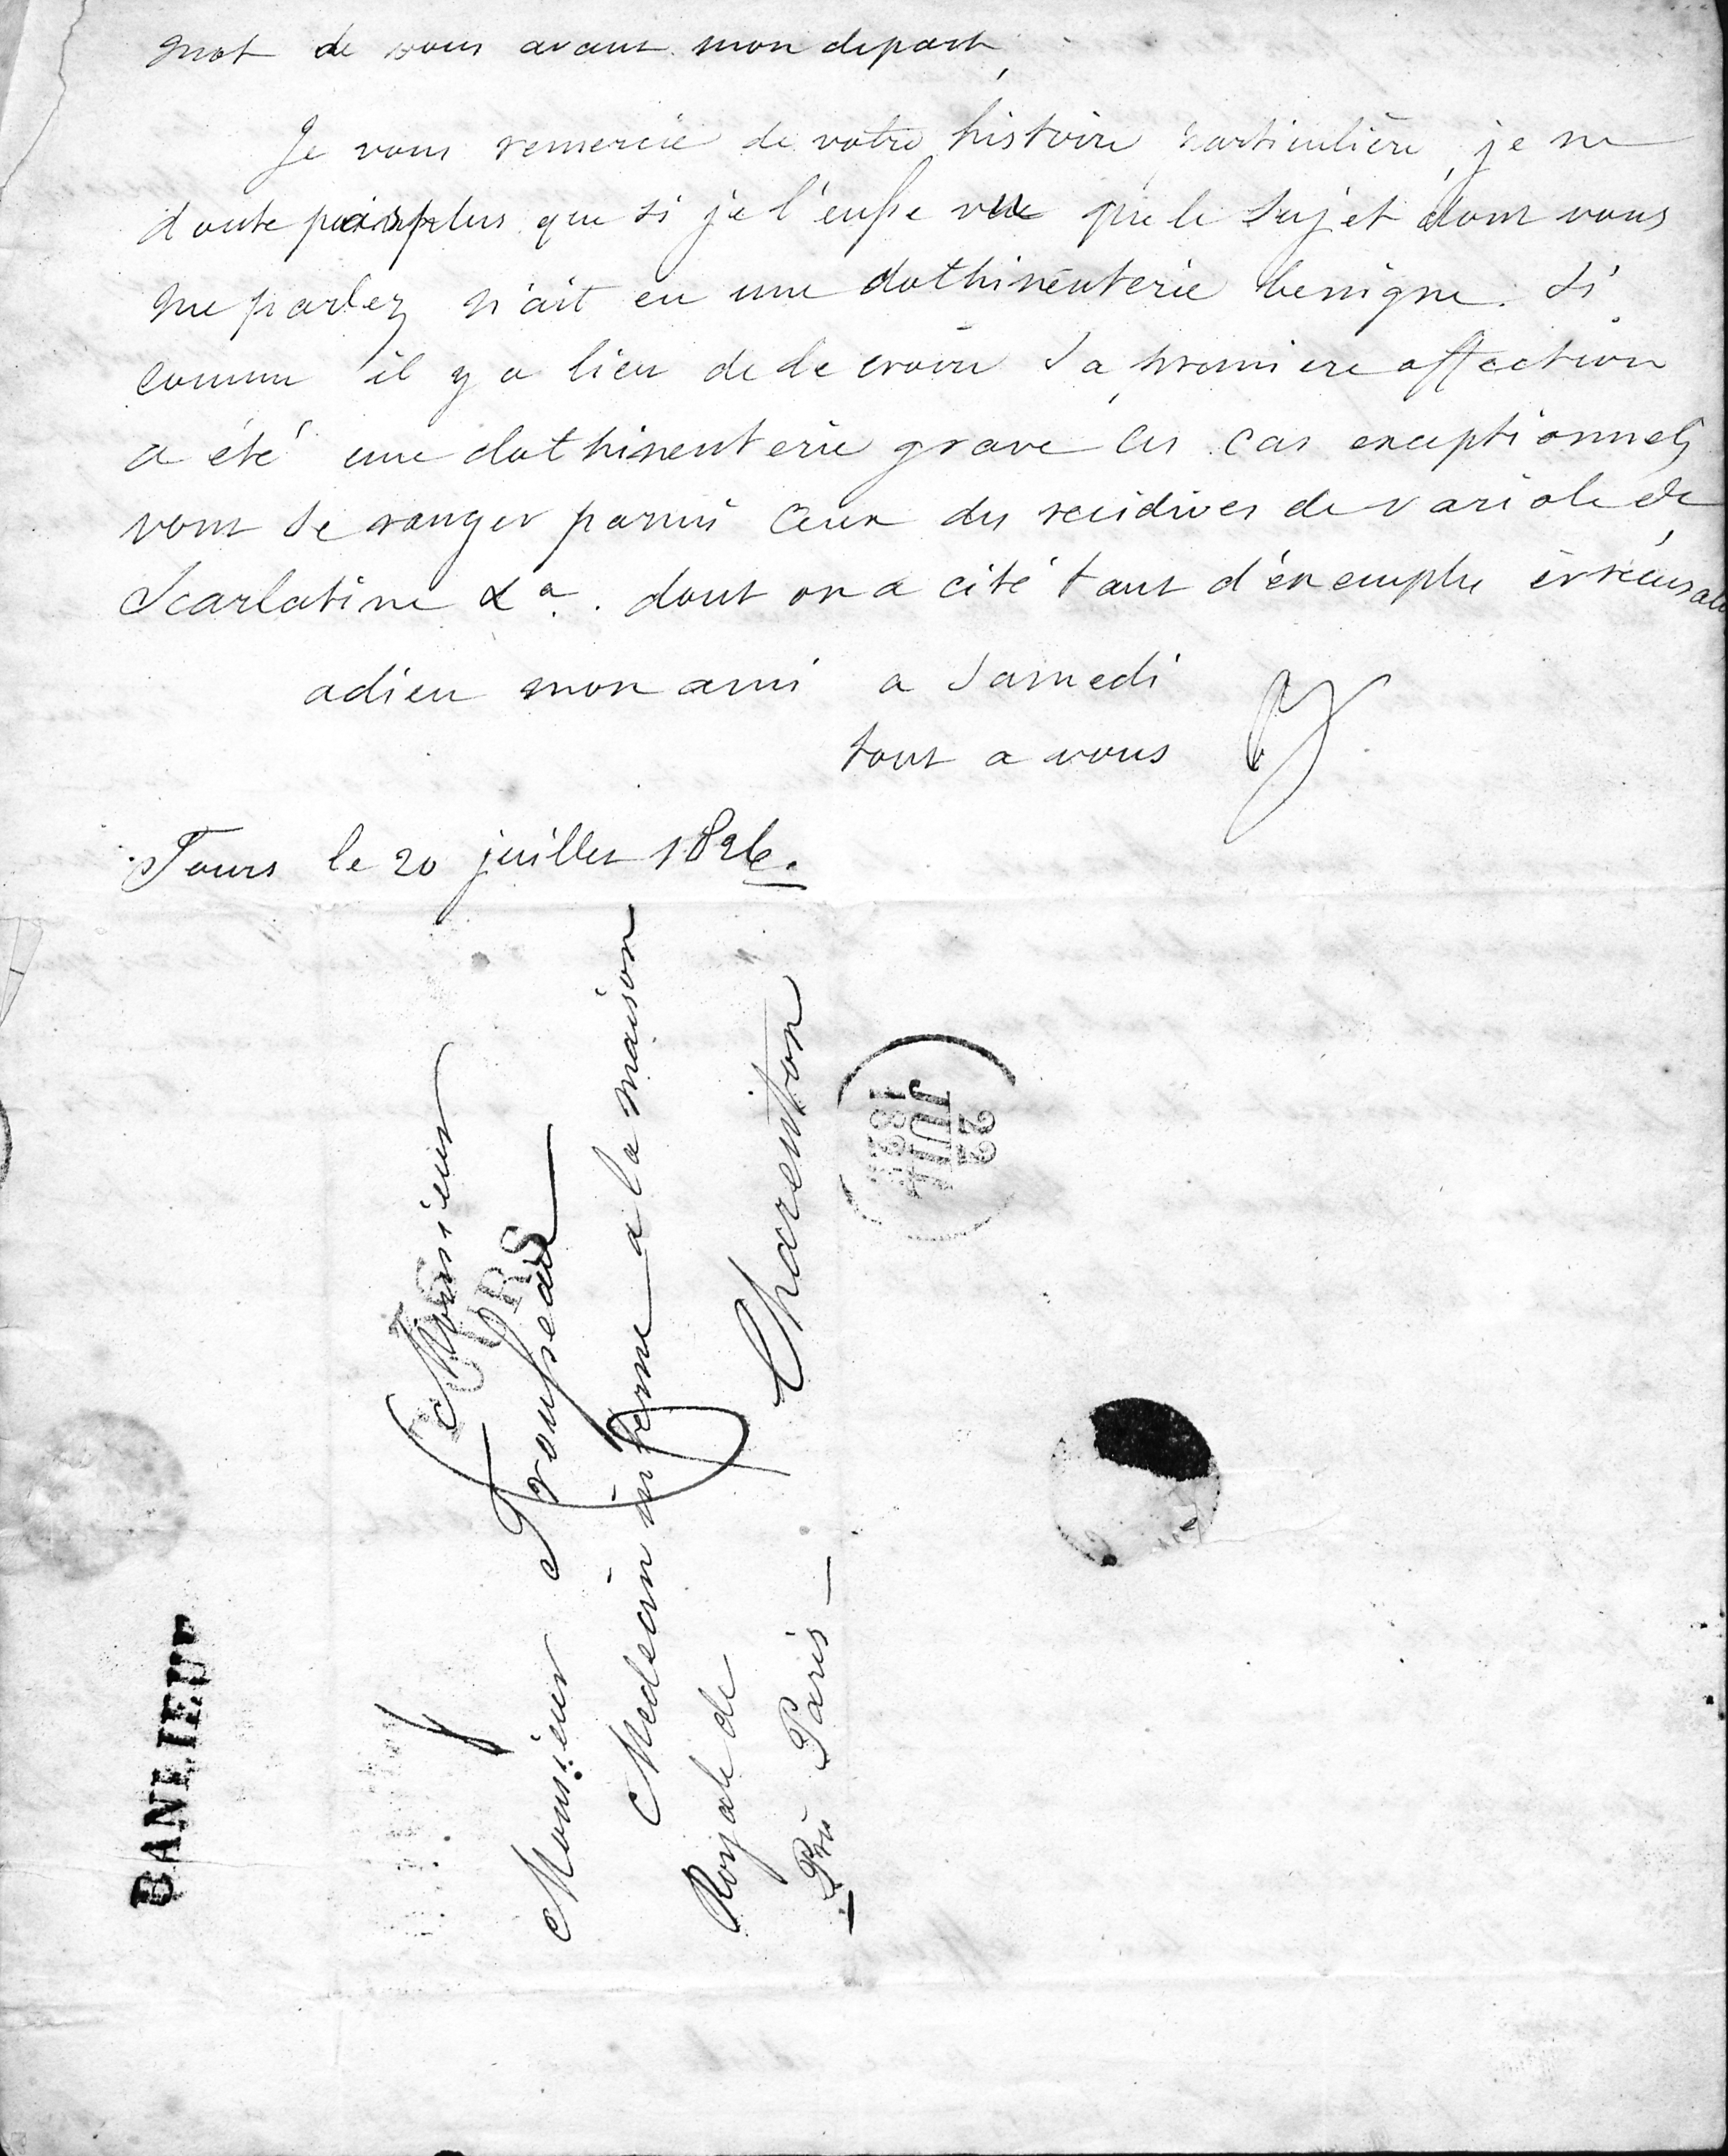 mot de vous avant mon depart,
Je vous remercie de votre histoire particulière, je ne
doute pas plus que si je l'eusse vu que le sujet dont vous
me parlez n'ait eu une dothinenterie benigne. Si
comme il y a lieu de le croire sa premiere affection
a été une dothinenterie grave ces cas exceptionnels
vont se ranger parmi ceux des recidives de variole de
Scarlatine &a. dont on a cité tant d'exemples
adieu mon ami a Samedi
tout a vous
Tours le 20 juillet 1826.
Monsieur
Monsieur Trousseau
Medecin interne a la maison
Royale de Charenton
Près Paris
36
TOURS
22
JUIL
BANLIEUE